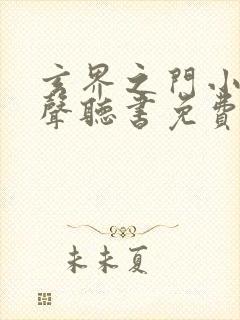 玄界之門小
聲聽書免費
未未夏